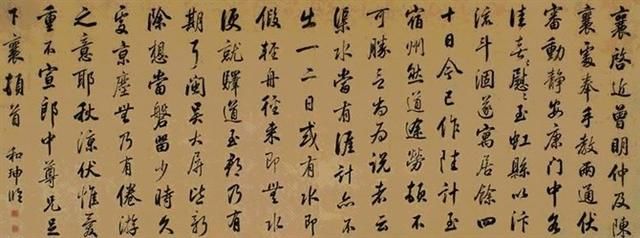 襄啓近曾明仲及陳
襄處奉手教兩通伏
審動靜安康門中各
佳喜〻慰〻至虹縣以汴
流斗涸遂寓居餘四
十日今已作陸計至
宿州然道途勞頓不
可勝言尚為說者云
渠水當有涯計亦不
出一二日或有水即
假輕舟徑來即無水
便就驛道至都乃有
期耳閩吳大屏皆新
除想當磐留少時久
處京塵無乃有倦游
之意耶秋涼伏惟愛
重不宣郎中尊兄足
下襄頓首
和珅臨